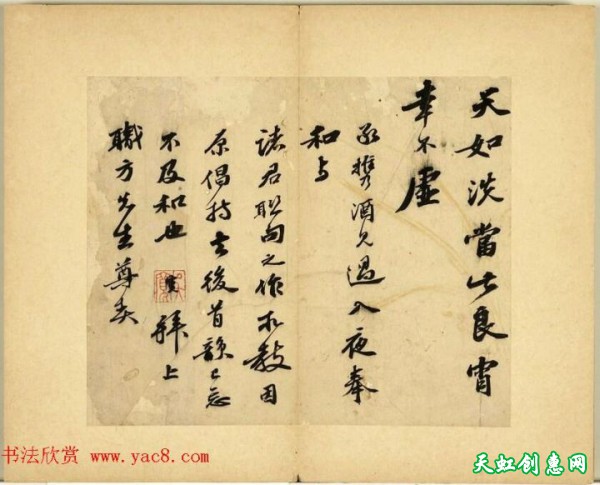 天如洗當此良宵
幸不虛
承携酒見過入夜奉
和与
諸君联句之作求教因
原倡持去後首韻已忘
不及和也 寬 拜上
職方先生尊契
书法欣赏 www.yac8.com
天虹创惠网